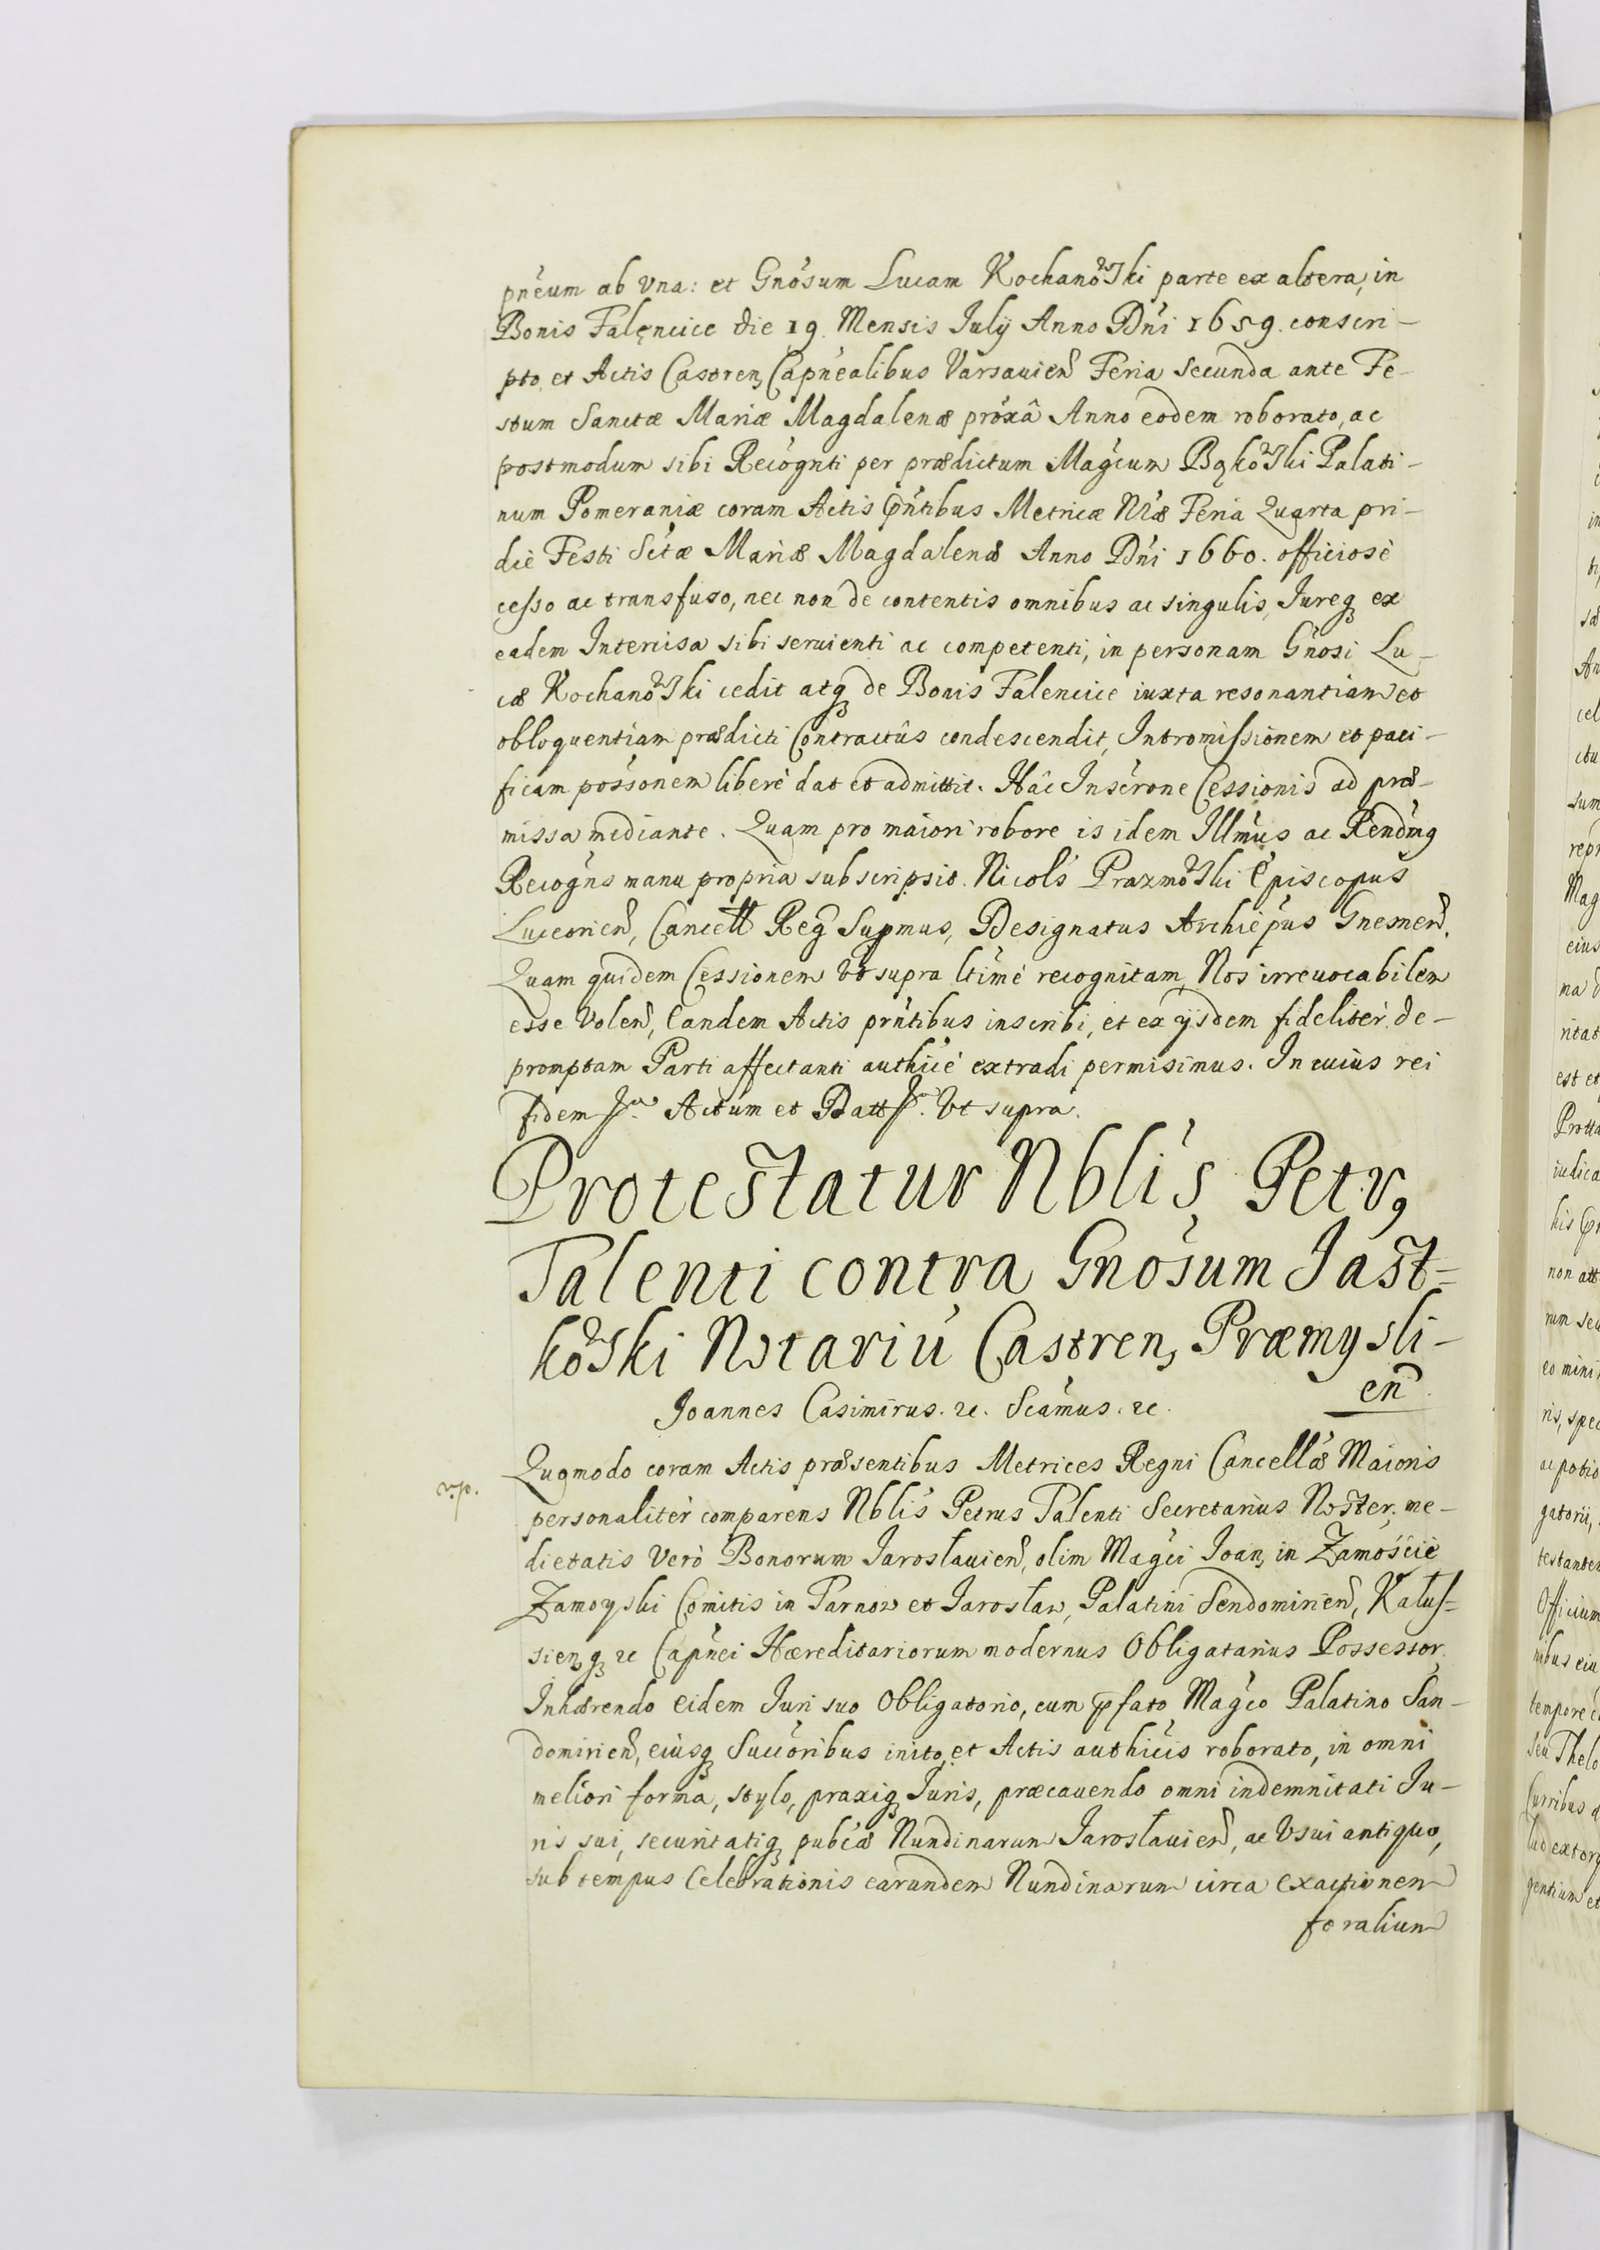 pńeum ab Vna: et Gnósum Lucam Kochanowski parte ex altera, in
Bonis Falęncice die 19 Mensis Julÿ Anno Dńi 1659. conscri-
pto, et Actis Castren, Capńealibus Varsauień Feria Secunda ante Fe-
stum Sanctæ Mariæ Magdalenæ próxâ Anno eodem roborato, ac
postmodum sibi Recógnti per prædictum Magćum Bąkowski Palati-
num Pomeraniæ coram Actis Pńtibus Metricæ Nræ Feria Quarta pri-
die Festi Sćtæ Mariæ Magdalenæ Anno Dńi 1660. officiosè
cesso ac transfuso, nec non de contentis omnibus ac singulis, Jureq ex
eadem Intercisa sibi seruienti ac competenti, in personam Gńosi Lu-
cæ Kochanowski cedit atq de Bonis Falencice iuxta resonantiam et
obloquentiam prædicti Contractûs condescendit, Intromissionem et paci-
ficam possonem liberè dat et admittit. Hâc Insćrone Cessionis ad præ-
missa mediante. Quam pro maiori robore is idem Illmús ac Rendmg
Recogńs manu propria subscripsit. Nicol's Prazmowski Episcopus
Luceorień, Cancell Reg Supmus, Designatus Archiepús Gnesneń.
Quam quidem Cessionem Vt supra ltimé recognitam, Nos irreuocabilem
esse Voleń, Eandem Actis prńtibus inscribi, et ex ÿsdem fideliter de-
promptam Parti affectanti authicè extradi permisimus. In cuius rei
fidem Actum et Vt supra.
Protestatur Nbli's Petrg
Talenti contra Gnosum Jast=
kowski Notariú Castren, Præmysli-
eń
Joannes Casimirus. &c. Scámus. &c.
Quomodo coram Actis præsentibus Metrices Regni Cancellæ Maioris
personaliter comparens Nbli's Petrus Talenti Secretarius Noster, me-
dietatis Verò Bonorum Jaroslauień, olim Magći Joan, in Zamoście
Zamoyski Comitis in Tarnow et Jaroslaw, Palatini Sendomirień, Kalus=
sienq &c Capńei Hæreditariorum modernus Obligatarius Possessor.
Inhærendo eidem Juri suo Obligatorio, cum pfato Magćo Palatino San-
domirień, eiusq Succoribus inito, et Actis authicis roborato, in omni
meliori forma, stylo, praxiq Juris, præcauendo omni indemnitati Ju-
ris sui, securitatiq pubcæ Nundinarum Jaroslauień, ac Vsui antiquo,
sub tempus Celebrationis earundem Nundinarum circa exactionem
foralium